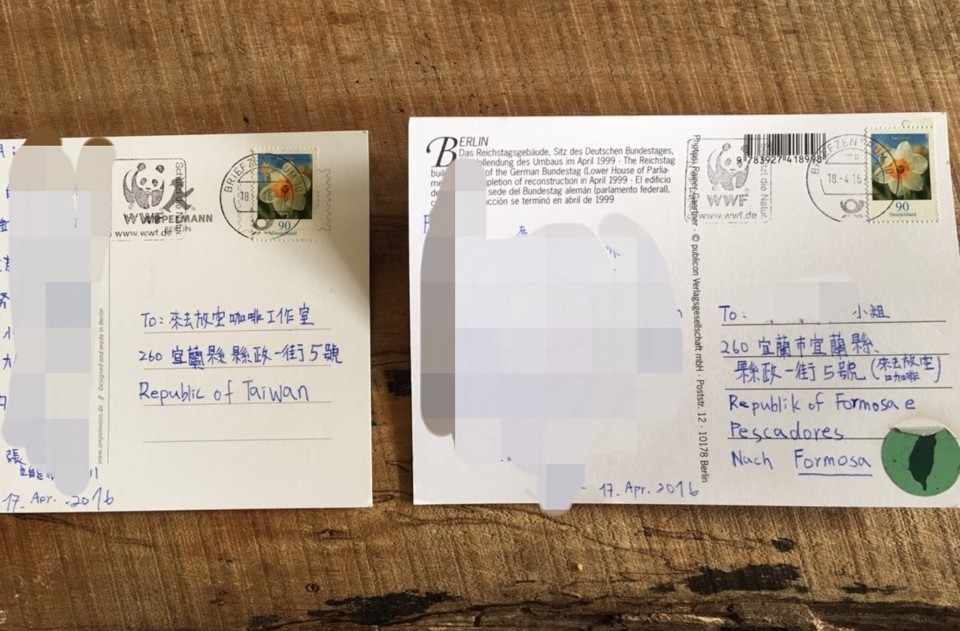 WWF
www.wwf.de
AMPELMANN
BERLIN
BRIEFZEN
18.
90
Deutschland
www.ampelmann.de // Designed and made in Berlin
To: 來去放空咖啡工作室
260 宜蘭縣縣政一街5號
Republic of Taiwan
張
17. Apr. 2016
BERLIN
Das Reichstagsgebäude, Sitz des Deutschen Bundestages,
ollendung des Umbaus im April 1999 · The Reichstag
buil of the German Bundestag (Lower House of Parlia-
me mpletion of reconstruction in April 1999 · El edificio
sede del Bundestag alemán (parlamento federal),
cción se terminó en abril de 1999
17. Apr. 2016
Photos: Rainer Gaertner · © publicon Verlagsgesellschaft mbH · Poststr. 12 · 10178 Berlin
9 783927 418998
WWF
www.wwf.de
tzt die Natur
FZEN
18.-4.16
90
Deutschland
To: 小姐
260 宜蘭市宜蘭縣、
縣政一街5號(來去放空
咖啡)
Republik of Formosa e
Pescadores
Nach Formosa